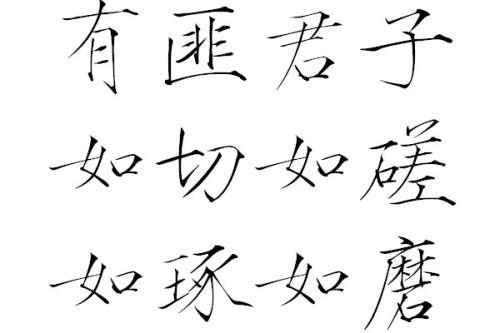 有匪君子
如切如磋
如琢如磨